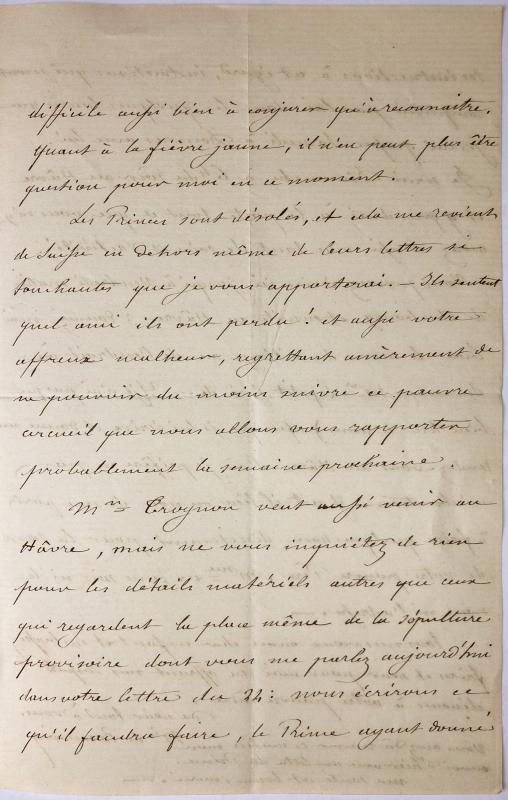 difficile aussi bien à conjurer qu'à reconnaître.
Quant à la fièvre jaune, il n'en peut plus être
question pour moi en ce moment.
Les Princes sont désolés, et cela me revient
de Suisse en dehors même de leurs lettres si
touchantes que je vous apporterai. — Ils sentent
quel ami ils ont perdu! et aussi votre
affreux malheur, regrettant amèrement de
ne pouvoir du moins suivre ce pauvre
cercueil que nous allons vous rapporter
probablement la semaine prochaine.
Mr Trognon veut aussi venir au
Hâvre, mais ne vous inquiétez de rien
pour les détails matériels autres que ceux
qui regardent la place même de la sépulture
provisoire dont vous me parlez aujourd'hui
dans votre lettre du 24: nous écrirons ce
qu'il faudra faire, le Prince ayant donné